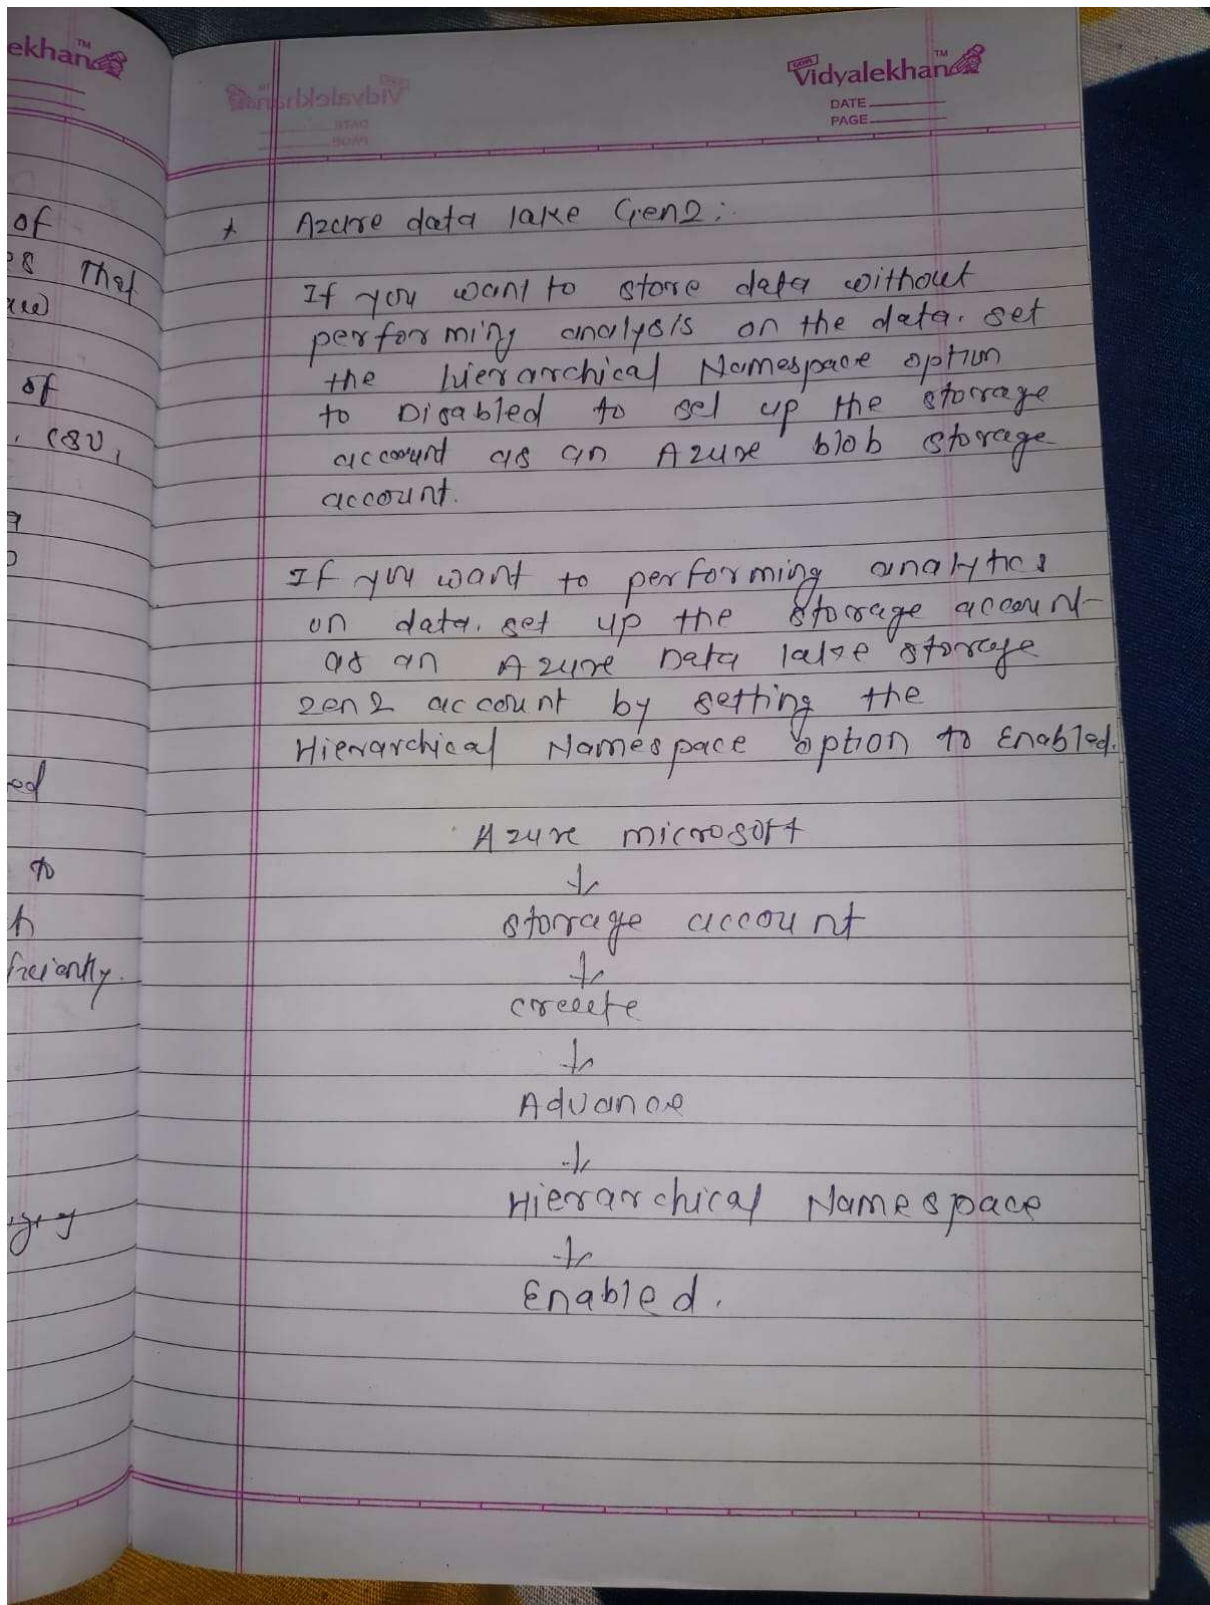 ekhan TM
Vidyalekhan TM
DATE
PAGE
of
es That
of
, CSV,
ed
to
h
ficiently.
* Azure data lake Gen2:
If you want to store data without
performing analysis on the data. set
the hierarchical Namespace option
to Disabled to set up the storage
account as an Azure blob storage
account.
If you want to performing analytics
on data. set up the storage account
as an Azure Data lake storage
gen2 account by setting the
Hierarchical Namespace option to Enabled.
Azure microsoft
↓
storage account
↓
create
↓
Advance
↓
Hierarchical Namespace
↓
Enabled.